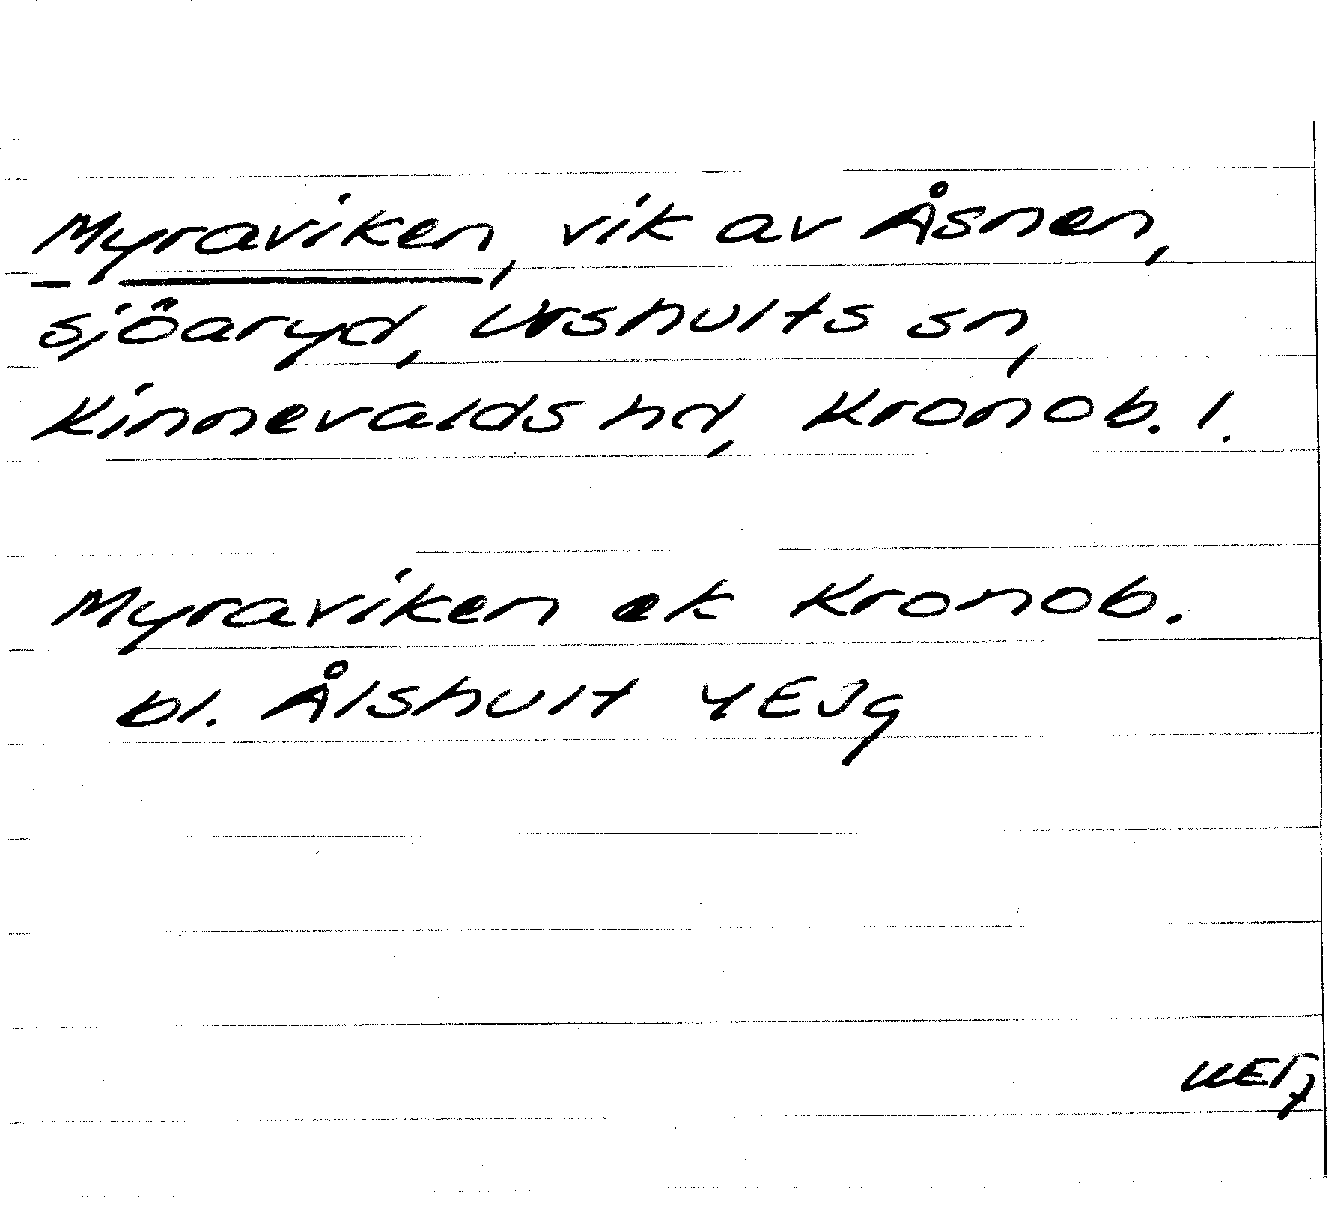 Myraviken, vik av Åsnen,
sjöaryd, Urshults sn,
Kinnevalds hd, Kronob. l.
Myraviken ek Kronob.
bl. Ålshult 4EJg